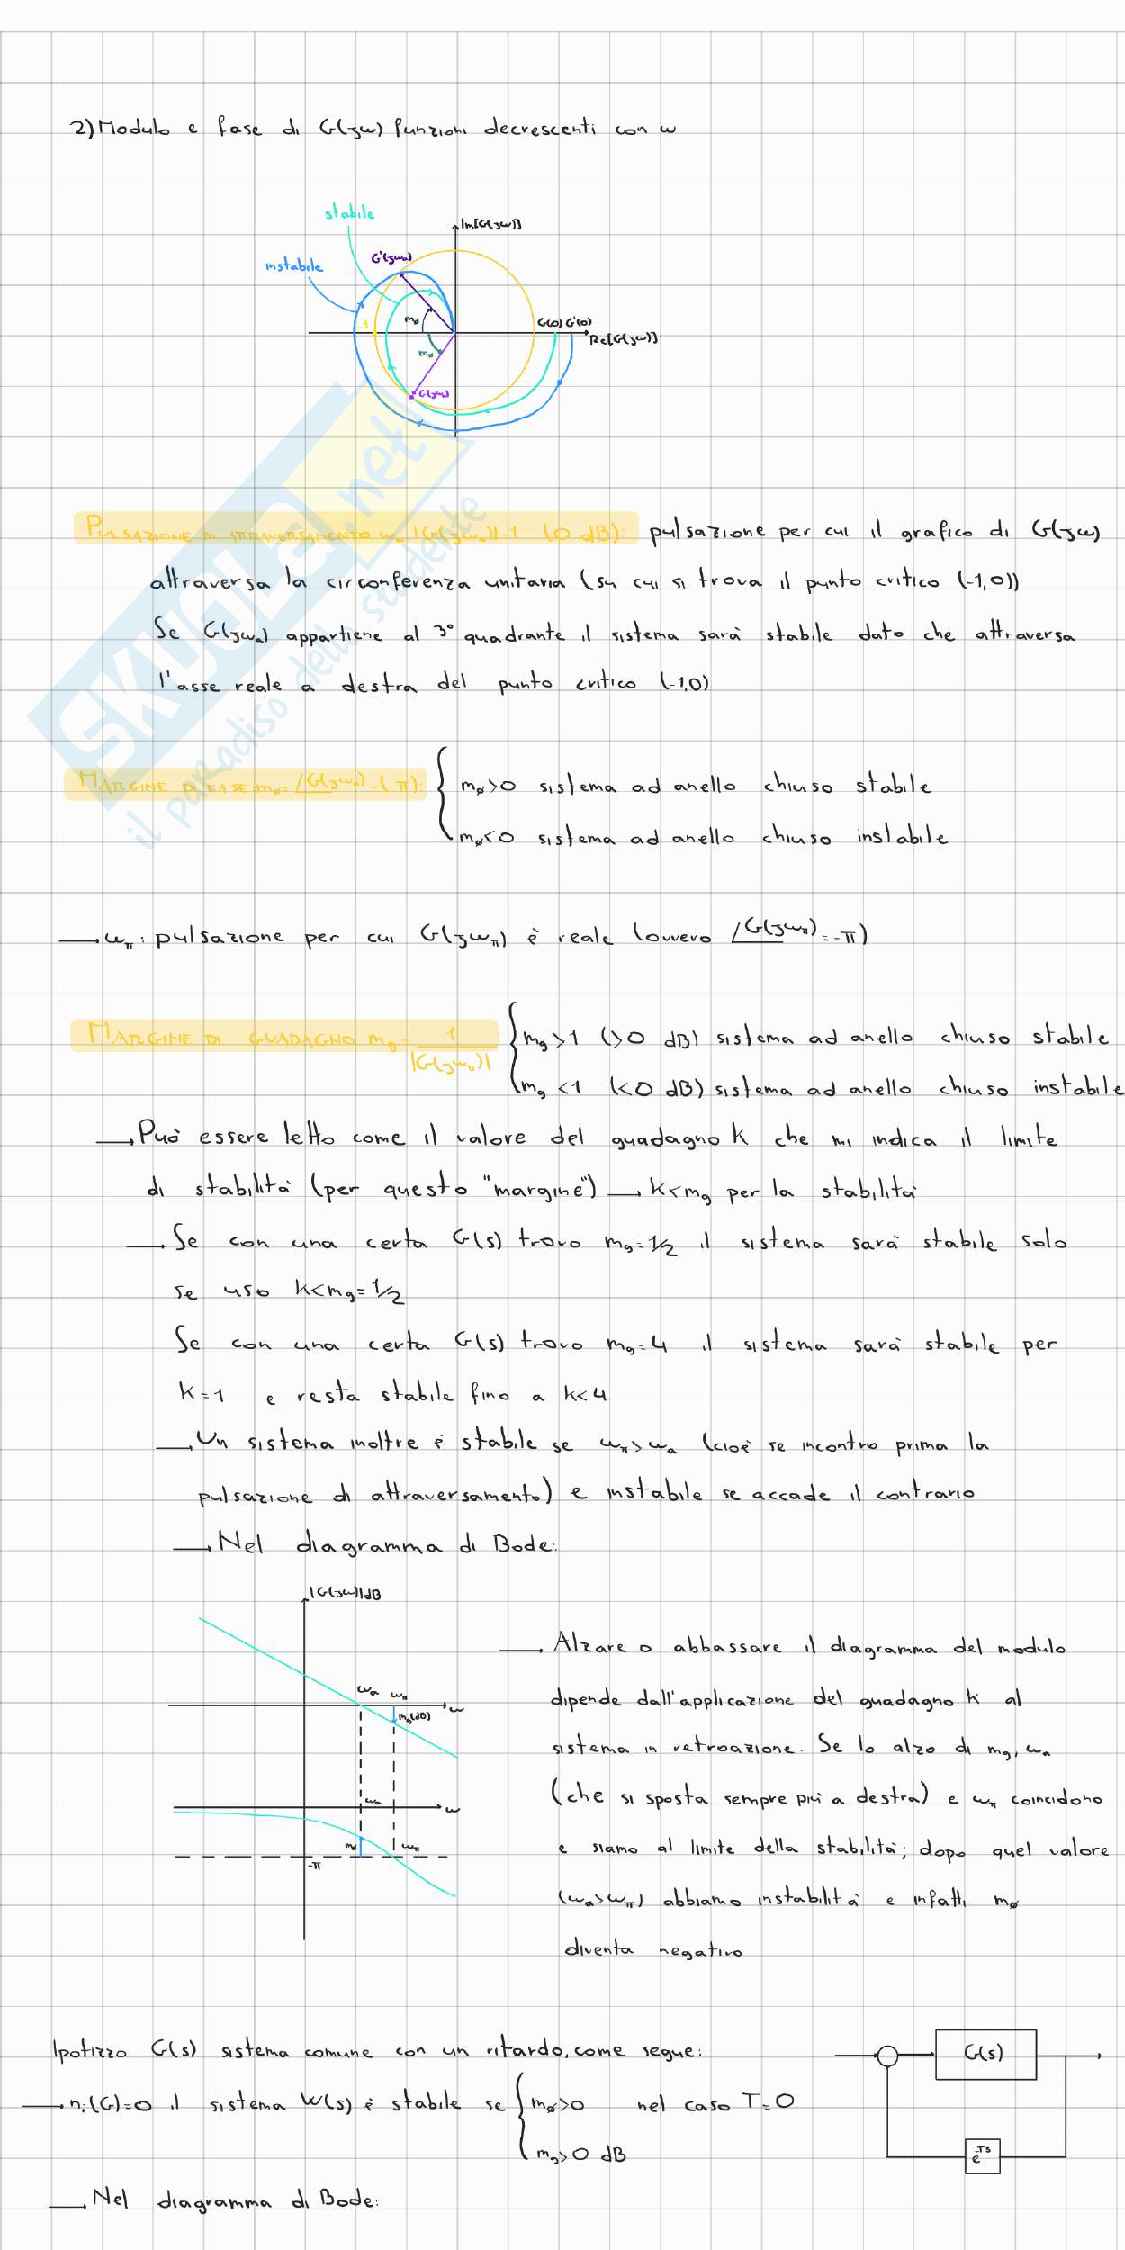 2) Modulo e fase di G(jω) funzioni decrescenti con ω
stabile
Im[G(jω)]
instabile
G'(jωa)
G(0) G'(0)
Re[G(jω)]
-1
mφ
mφ
G(jωa)
PULSAZIONE DI ATTRAVERSAMENTO ωa |G(jωa)|=1 (0 dB): pulsazione per cui il grafico di G(jω)
attraversa la circonferenza unitaria (su cui si trova il punto critico (-1,0))
Se G(jωa) appartiene al 3° quadrante il sistema sarà stabile dato che attraversa
l'asse reale a destra del punto critico (-1,0)
MARGINE DI FASE mφ= /G(jωa) -(-π): { mφ>0 sistema ad anello chiuso stabile
mφ<0 sistema ad anello chiuso instabile
→ ωπ: pulsazione per cui G(jωπ) è reale (ovvero /G(jωπ) = -π)
MARGINE DI GUADAGNO mg= 1/|G(jωπ)| { mg>1 (>0 dB) sistema ad anello chiuso stabile
mg<1 (<0 dB) sistema ad anello chiuso instabile
→ Può essere letto come il valore del guadagno K che mi indica il limite
di stabilità (per questo "margine") → K<mg per la stabilità
→ Se con una certa G(s) trovo mg=1/2 il sistema sarà stabile solo
se uso K<mg=1/2
Se con una certa G(s) trovo mg=4 il sistema sarà stabile per
K=1 e resta stabile fino a K<4
→ Un sistema inoltre è stabile se ωπ>ωa (cioè se incontro prima la
pulsazione di attraversamento) e instabile se accade il contrario
→ Nel diagramma di Bode:
|G(jω)|dB
ωa ωπ
ω
mg(dB)
ωa
ω
mφ
ωπ
-π
→ Alzare o abbassare il diagramma del modulo
dipende dall'applicazione del guadagno K al
sistema in retroazione. Se lo alzo di mg, ωa
(che si sposta sempre più a destra) e ωπ coincidono
e siamo al limite della stabilità; dopo quel valore
(ωa>ωπ) abbiamo instabilità e infatti mφ
diventa negativo
Ipotizzo G(s) sistema comune con un ritardo, come segue:
G(s)
→ ni(G)=0 il sistema W(s) è stabile se { mφ>0 nel caso T=0
mg>0 dB
e^-TS
→ Nel diagramma di Bode:
SKUOLA.net
il paradiso dello studente